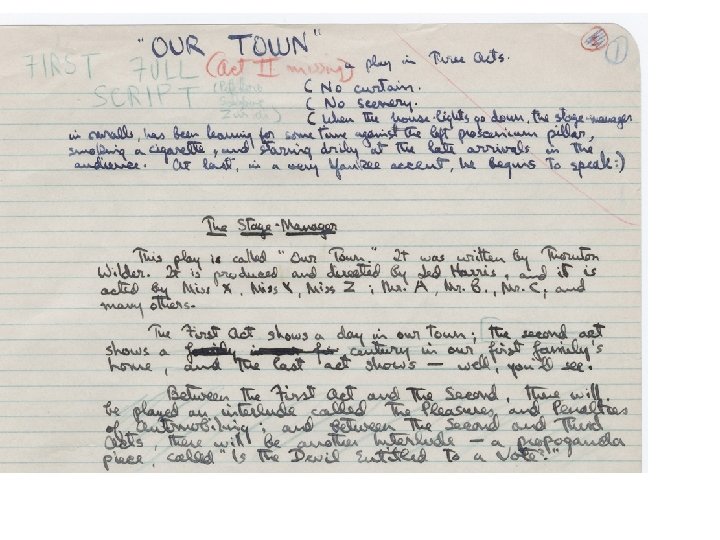 "OUR TOWN"
a play in Three Acts.
FIRST FULL (Act II missing)
SCRIPT
( No curtain.
( No scenery.
( When the house-lights go down, the stage-manager
in overalls, has been leaning for some time against the left proscenium pillar,
smoking a cigarette, and staring drily at the late arrivals in the
audience. At last, in a very Yankee accent, he begins to speak:)
1
The Stage-Manager
This play is called "Our Town" It was written by Thornton
Wilder. It is produced and directed by Jed Harris, and it is
acted by Miss X, Miss Y, Miss Z; Mr. A, Mr. B., Mr. C, and
many others.
The First Act shows a day in our town; the second act
shows a century in our first family's
home, and the last act shows — well, you'll see.
Between the First Act and the Second, there will
be played an interlude called The Pleasures and Penalties
of Automobiling; and between the Second and Third
Acts, there will be another Interlude — a propoganda
piece, called "Is the Devil Entitled to a Vote?"